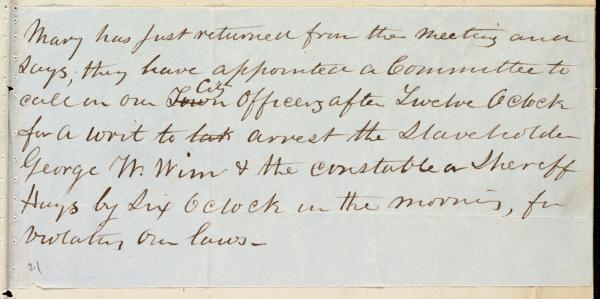 Mary has just returned from the meeting and
says, they have appointed a Committee to
call on our Town City Officers after Twelve Oclock
for a writ to tak arrest the Slaveholder
George W. Wim & the constable or Sheriff
Hays by Six Oclock in the morning, for
violating our laws—
21